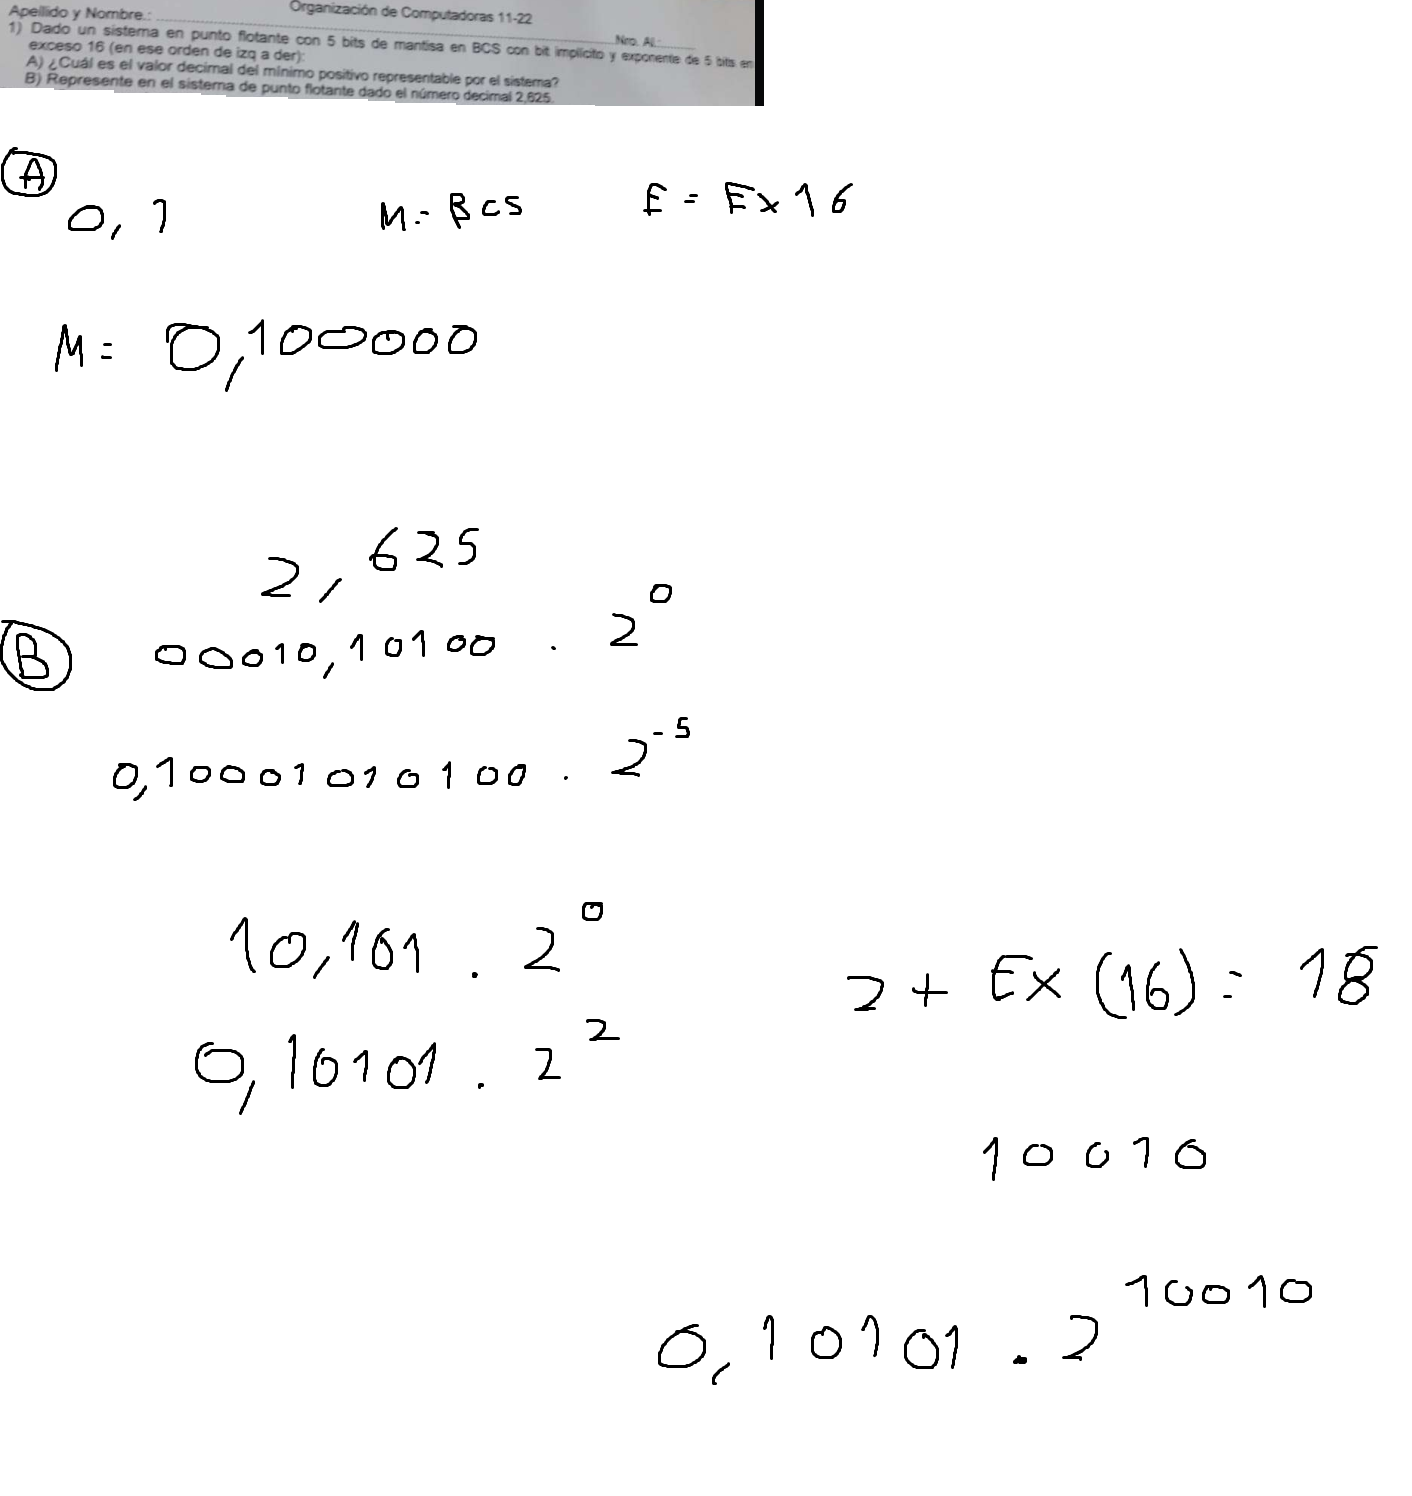 Organización de Computadoras 11-22
Apellido y Nombre.: Nro. Al.:
1) Dado un sistema en punto flotante con 5 bits de mantisa en BCS con bit implícito y exponente de 5 bits en
exceso 16 (en ese orden de izq a der):
A) ¿Cuál es el valor decimal del mínimo positivo representable por el sistema?
B) Represente en el sistema de punto flotante dado el número decimal 2,625.
A
0,1 M = BCS E = Ex 16
M = 0,100000
2,625
B 00010,10100 . 2^0
0,10001010100 . 2^-5
10,101 . 2^0
2 + Ex (16) = 18
0,10101 . 2^2
10010
0,10101 . 2^10010